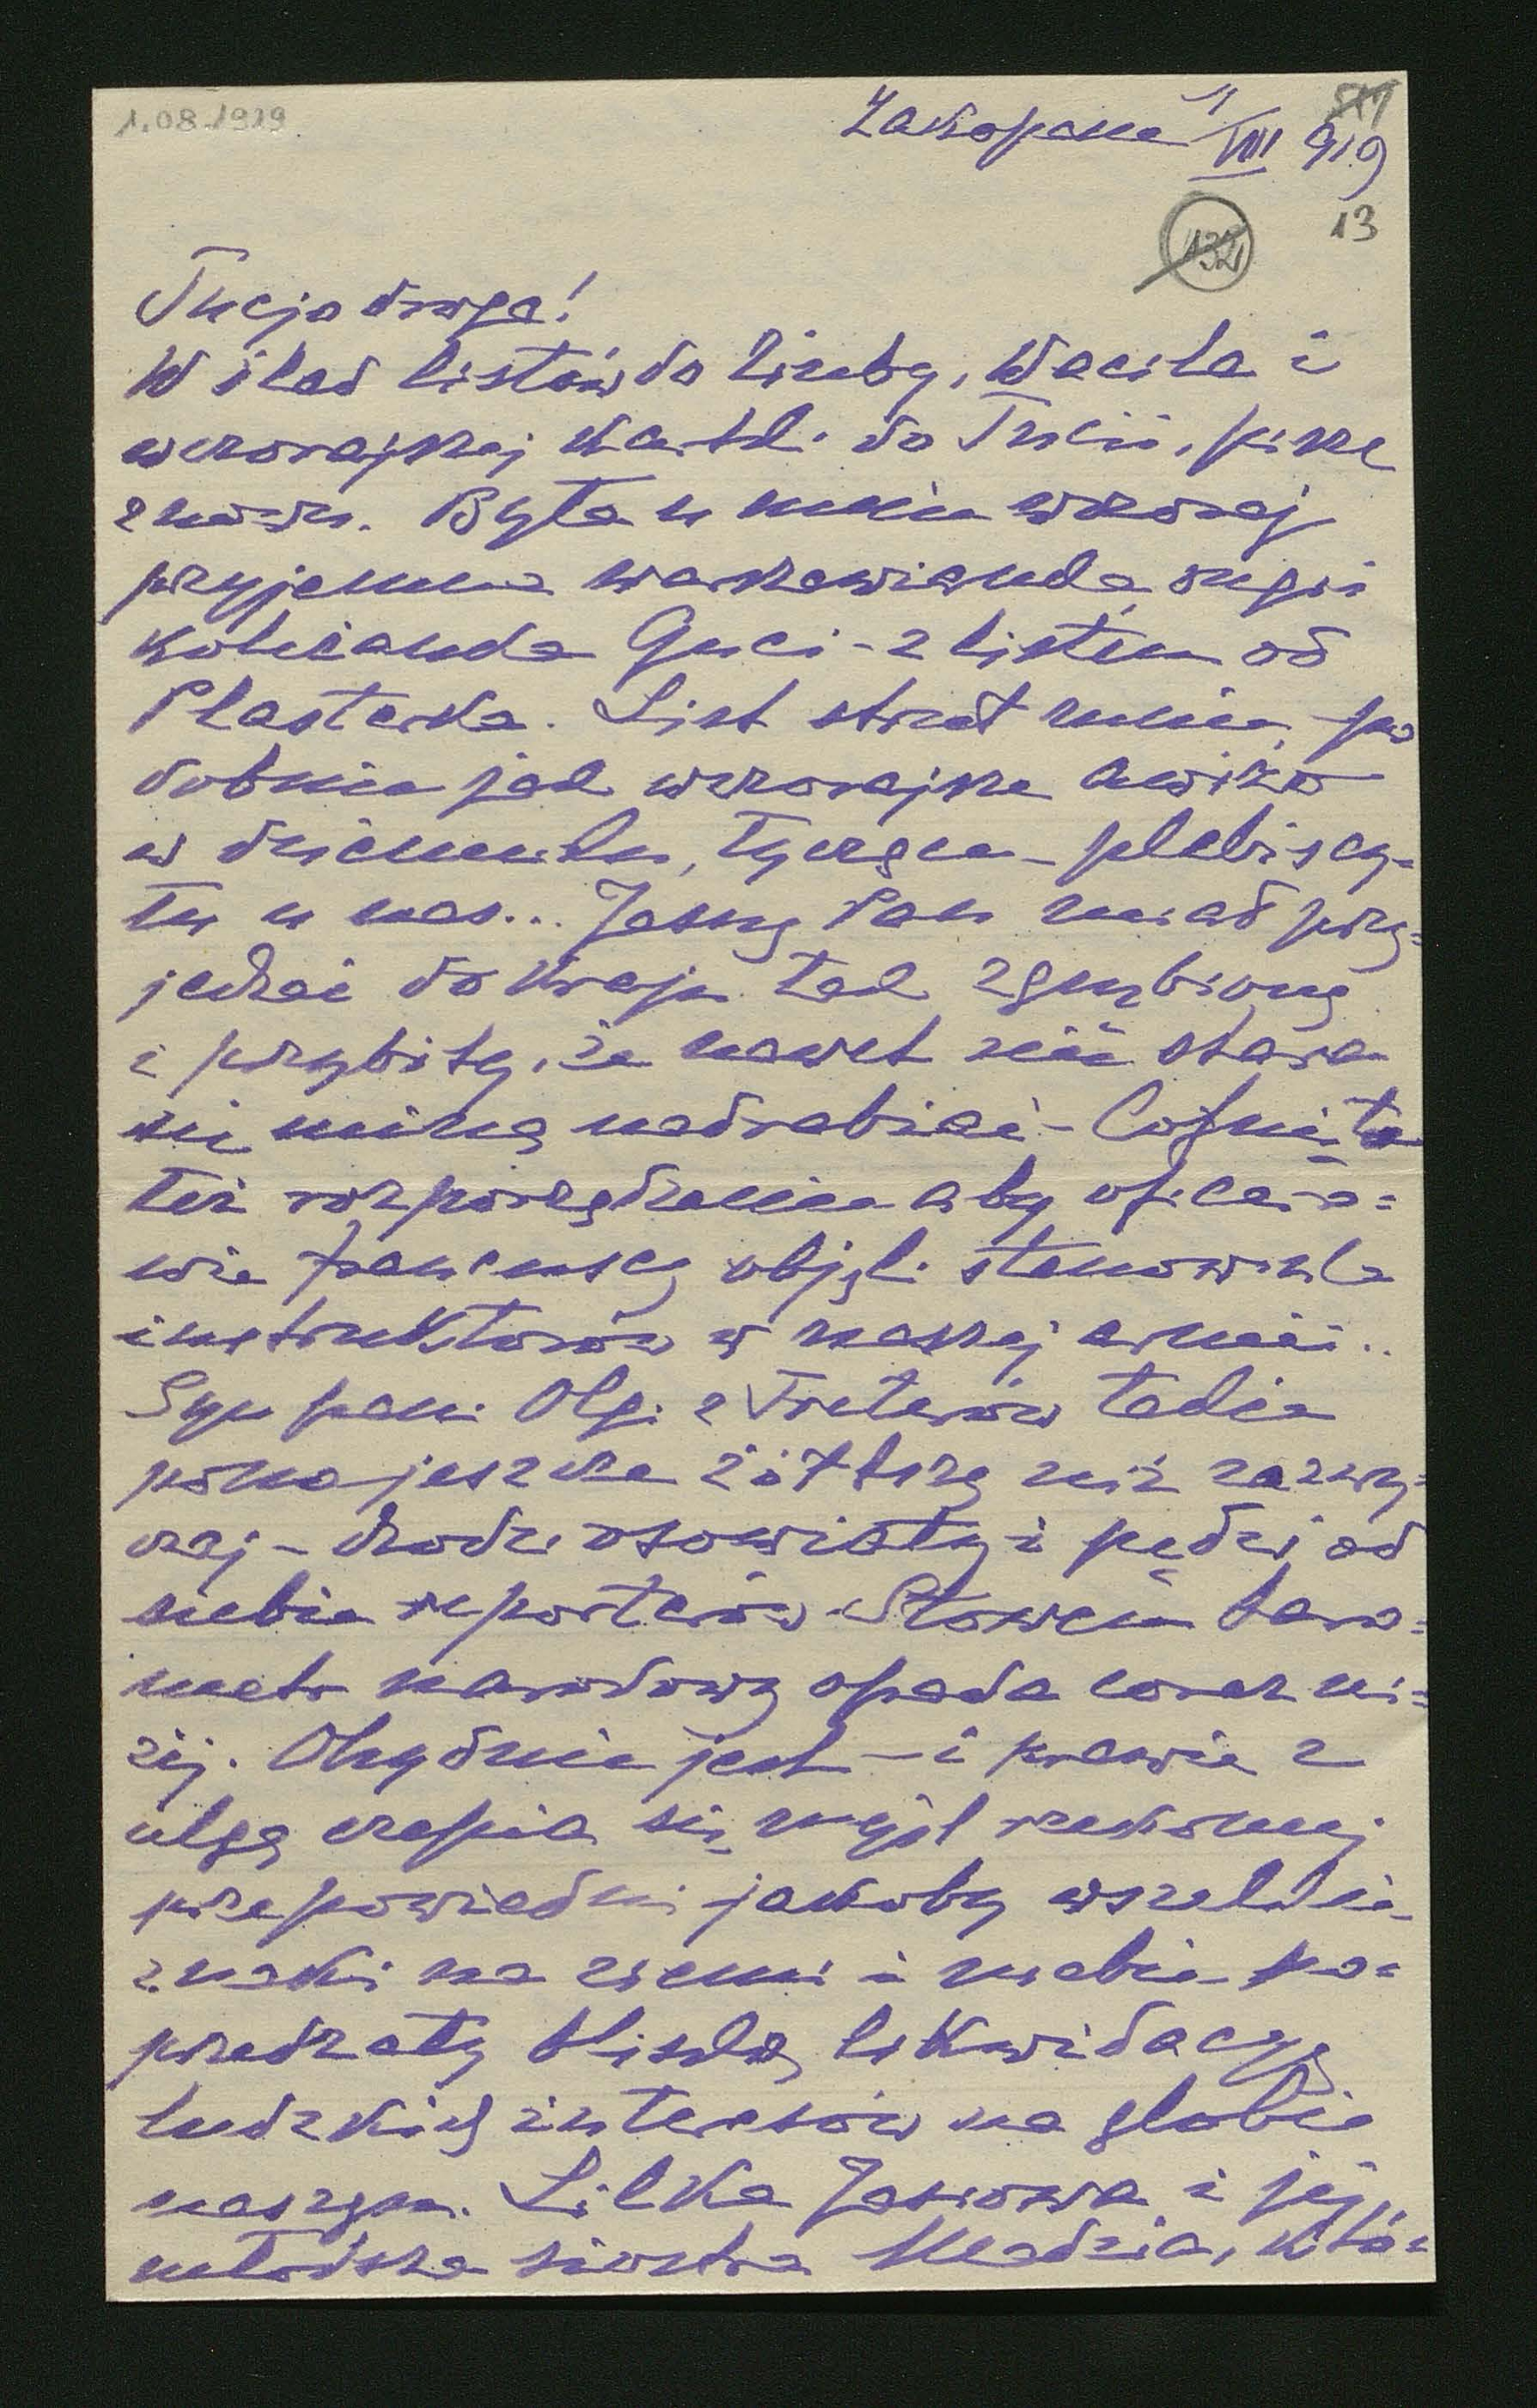 1.08.1919
Zakopane 1/VIII 919
511
132
13
Tucjo droga!
W ślad listów do Ziuby, Wacila i
wczorajszej kartki do Tucii, piszę
znowu. Była u mnie wczoraj
przyjemna warszawianka,
koleżanka Guci - z listem od
Plasterka. List struł mnie, po
dobnie jak wczorajsze awizo
w dzienniku, tyczące - plebiscy=
tu u nas... Jasny Pan miał przy=
jechać do kraju tak zgnębiony
i przybity, że nawet nie stara
się miną nadrabiać - Cofnięto
też rozporządzenie aby oficero=
wie francuscy objęli stanowiska
instruktorów w naszej armii..
Syn pani Olgi z Freterów także
jeszcze żółtszy niż zazwy=
czaj - chodzi osowiały i pędzi od
siebie reporterów. Słowem baro=
metr narodowy opada coraz ni=
żej. Ohydnie jest - i prawie z
ulgą czepia się myśl rzekomej
przepowiedni jakoby wszelkie
znaki na ziemi i niebie po=
przedzały bliską likwidacyę
ludzkich interesów na globie
naszym. Lilka Jasiowa i jej
młodsza siostra Madzia, któ=